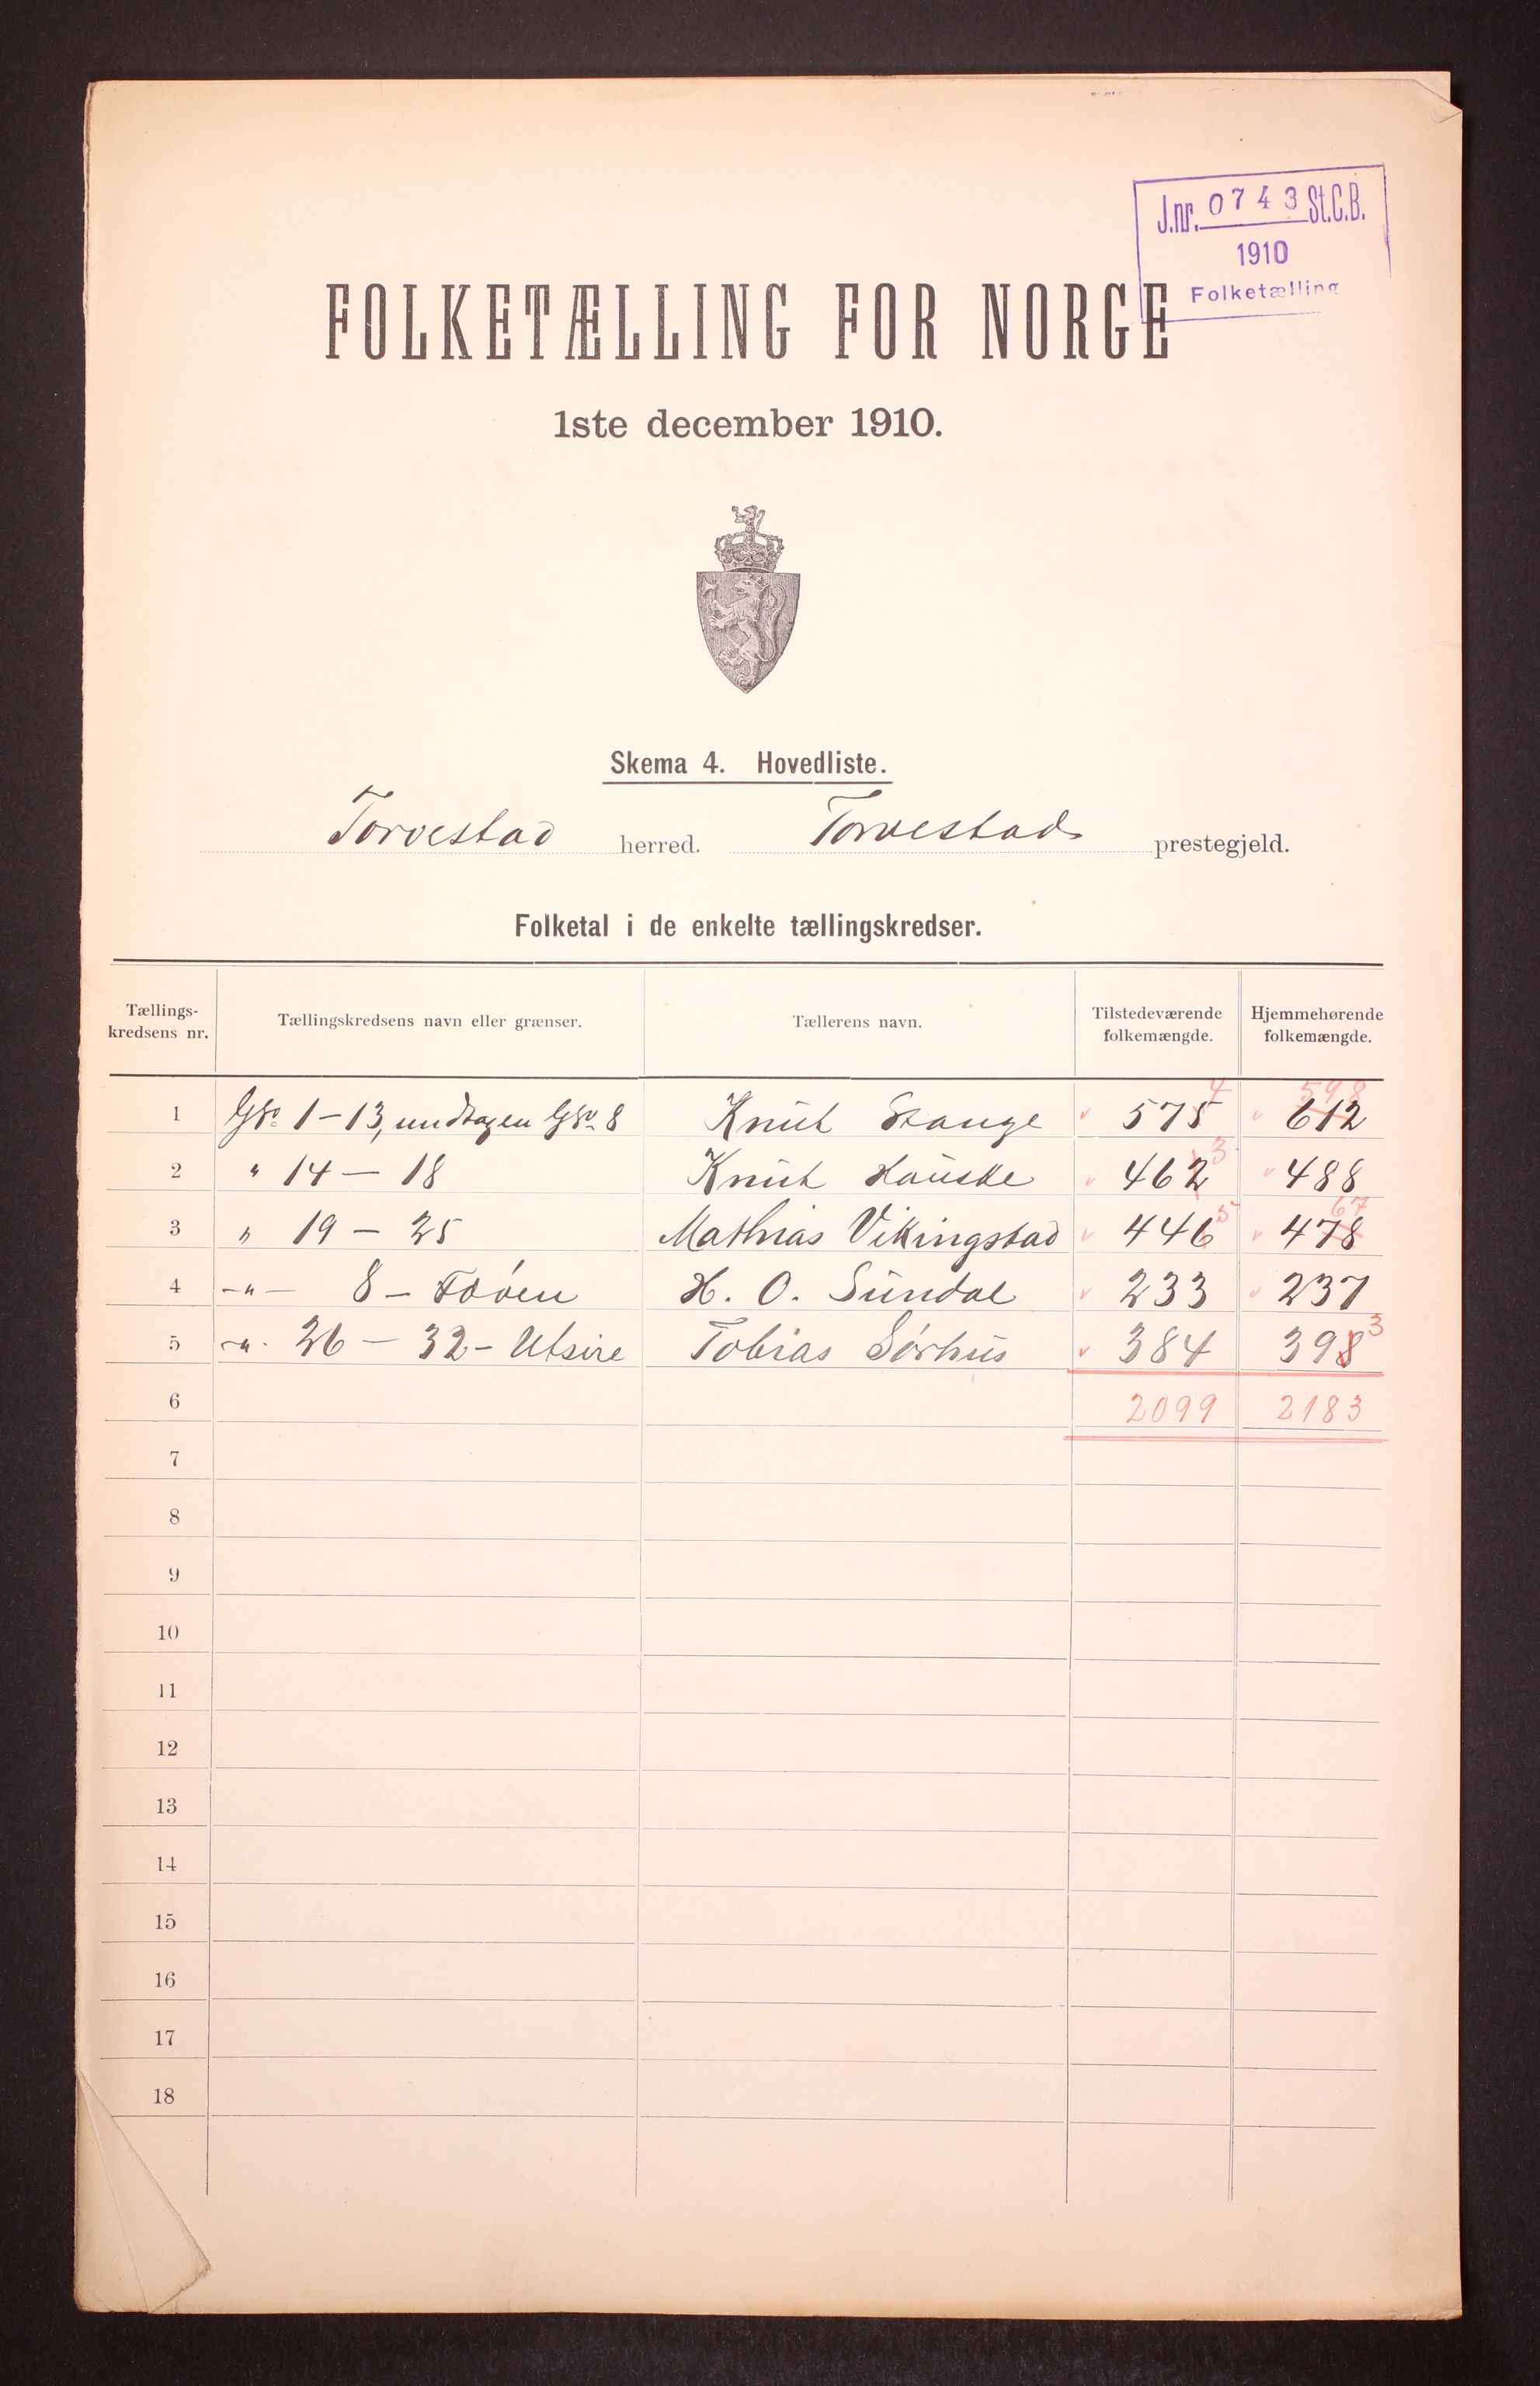 J.nr. 0743 St.C.B.
1910
Folketælling
FOLKETÆLLING FOR NORGE
1ste december 1910.
Skema 4. Hovedliste.
Torvestad herred. Torvestad prestegjeld.
Folketal i de enkelte tællingskredser.
Tællings-kredsens nr. Tællingskredsens navn eller grænser. Tællerens navn. Tilstedeværende folkemængde. Hjemmehørende folkemængde.
4 598
1 Gno 1-13, undtagen Gno 8 Knut Stange 575 612
3
2 " 14 - 18 Knut Hauske 462 488
5 67
3 " 19 - 25 Mathias Vikingstad 446 478
4 -"- 8 - Føøen H. O. Sundal 233 237
3
5 -"- 26 - 32 - Utsire Tobias Sørhus 384 398
6 2099 2183
7
8
9
10
11
12
13
14
15
16
17
18